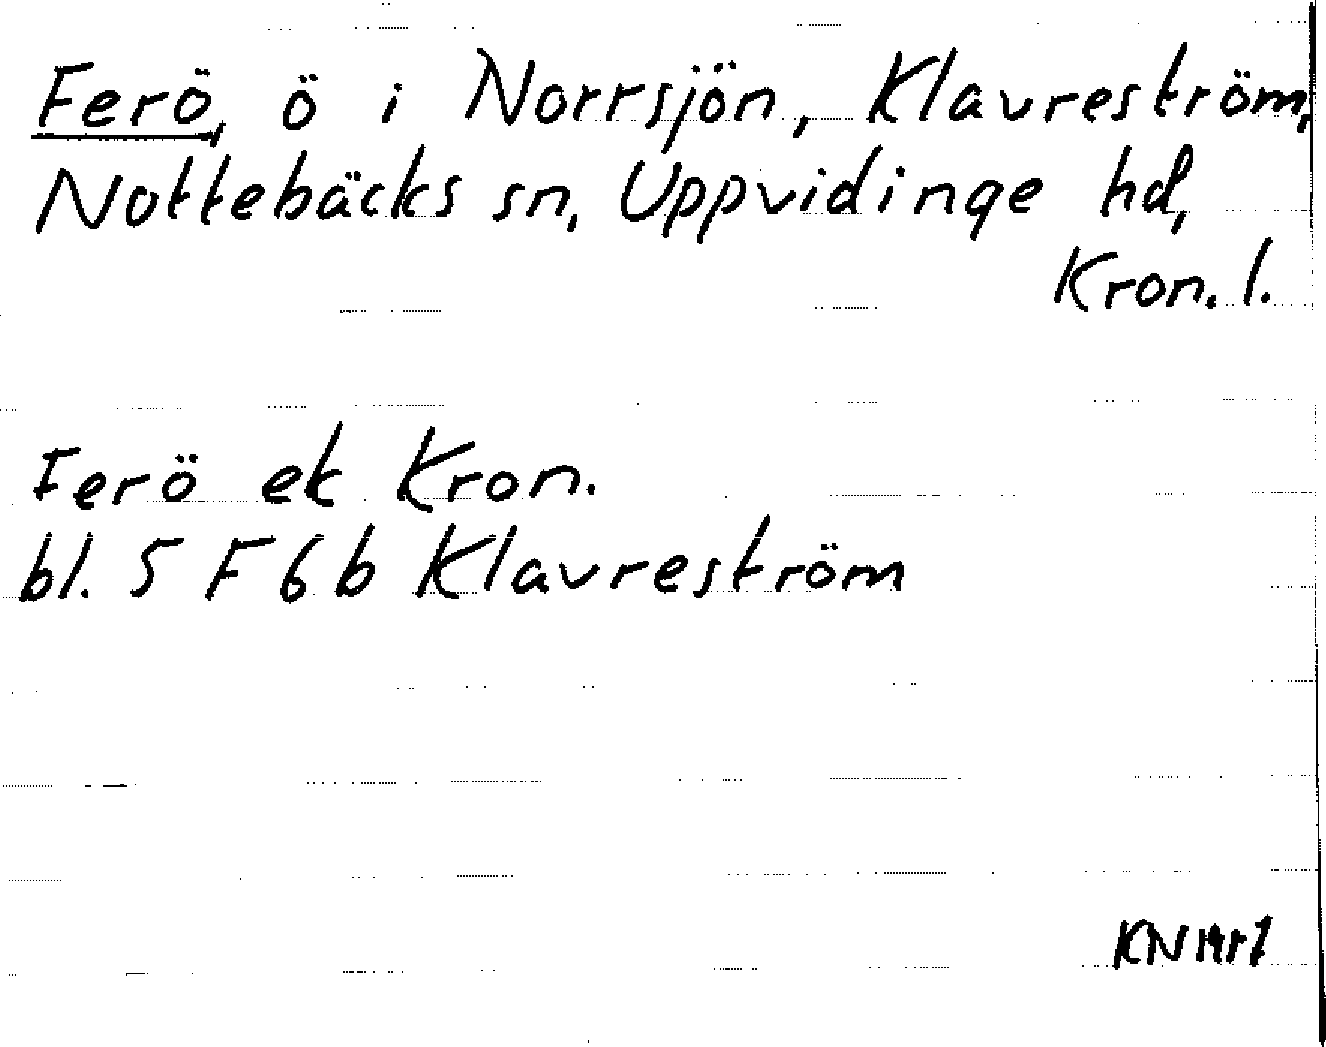 Ferö, ö i Norrsjön, Klavreström,
Nottebäcks sn, Uppvidinge hd,
Kron. l.
Ferö ek Kron.
bl. 5 F 6 b Klavreström
KN